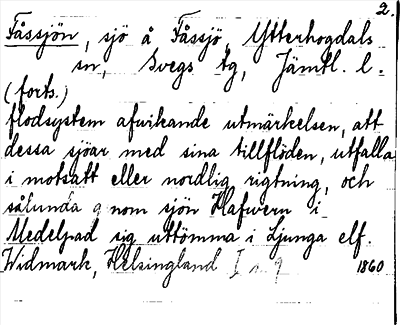 2.
Fåssjön, sjö å Fåssjö, Ytterhogdals
sn, Svegs tg, Jämtl. l.
(forts.)
flodsystem afvikande utmärkelsen, att
dessa sjöar med sina tillflöden, utfalla
i motsatt eller nordlig rigtning, och
sålunda genom sjön Hafvern i
Medelpad sig uttömma i Ljunga elf.
Widmark, Helsingland I s. 9 1860